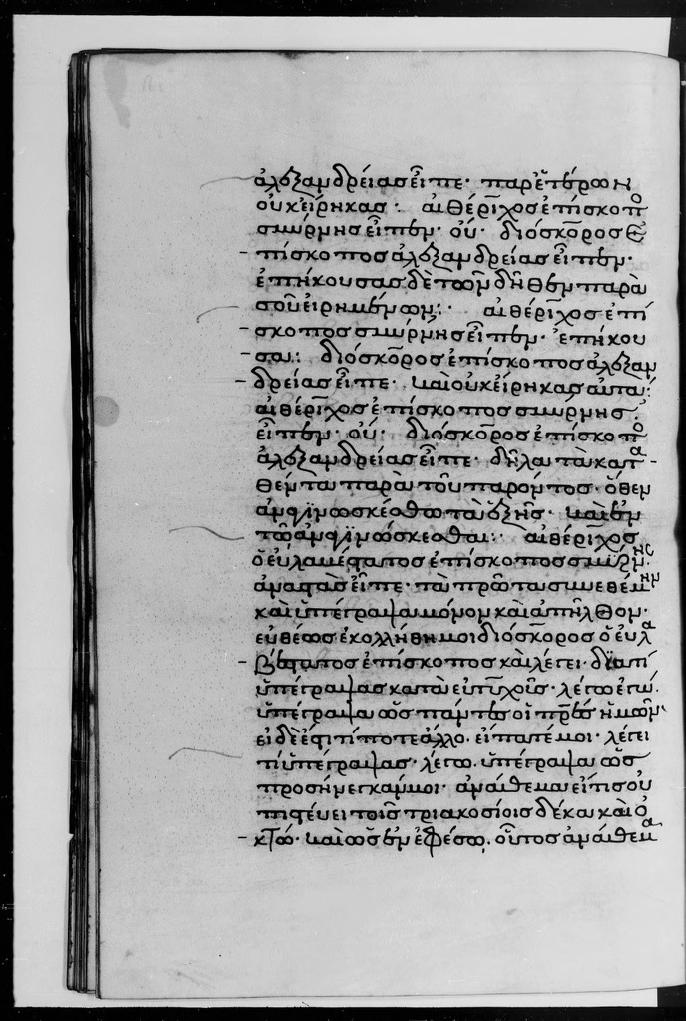 ἀλεξανδρείας εἶπε· παρ' ἑτέρων
οὐκ εἴρηκας· αἰθέριχος ἐπίσκοπο
σμύρνης εἶπεν· οὔ· διόσκορος ἐ
πίσκοπος ἀλεξανδρείας εἶπεν·
ἐπήκουσας δὲ τῶν δῆθεν παρὰ
σοῦ εἰρημένων· αἰθέριχος ἐπί
σκοπος σμύρνης εἶπεν· ἐπήκου
σα· διόσκορος ἐπίσκοπος ἀλεξαν
δρείας εἶπε· καὶ οὐκ εἴρηκας αὐτά·
αἰθέριχος ἐπίσκοπος σμύρνης
εἶπεν· οὔ· διόσκορος ἐπίσκοπο
ἀλεξανδρείας εἶπε· δῆλα τὰ κατα
θεντα παρὰ τοῦ παρόντος· ὅθεν
ἀναγινωσκέσθω τὰ ἑξῆς· καὶ ἐν
τῶ ἀναγινώσκεσθαι· αἰθέριχος
ὁ εὐλαβέστατος ἐπίσκοπος σμύρνης
ἀναστὰς εἶπε· τὰ πρῶτα συνεθέμην
καὶ ὑπέγραψα μόνον καὶ ἀπῆλθον·
εὐθέως ἐκολλήθη μοι διόσκορος ὁ εὐλα
βέστατος ἐπίσκοπος καὶ λέγει· διατί
ὑπέγραψας κατὰ εὐτυχοῦς· λέγω ἐγώ·
ὑπέγραψα ὡς πάντες οἱ πρες ἡμῶν·
εἰ δὲ ἐστι τί ποτε ἄλλο· εἴπατέ μοι· λέγει
τί ὑπέγραψας· λέγω· ὑπέγραψα ὡς
προσήνεγκάν μοι· ἀνάθεμα εἴ τις οὐ
πιστεύει τοῖς τριακοσίοις δέκα καὶ ὀ
κτώ· καὶ ὡς ἐν ἐφέσω· οὗτος ἀνάθεμα